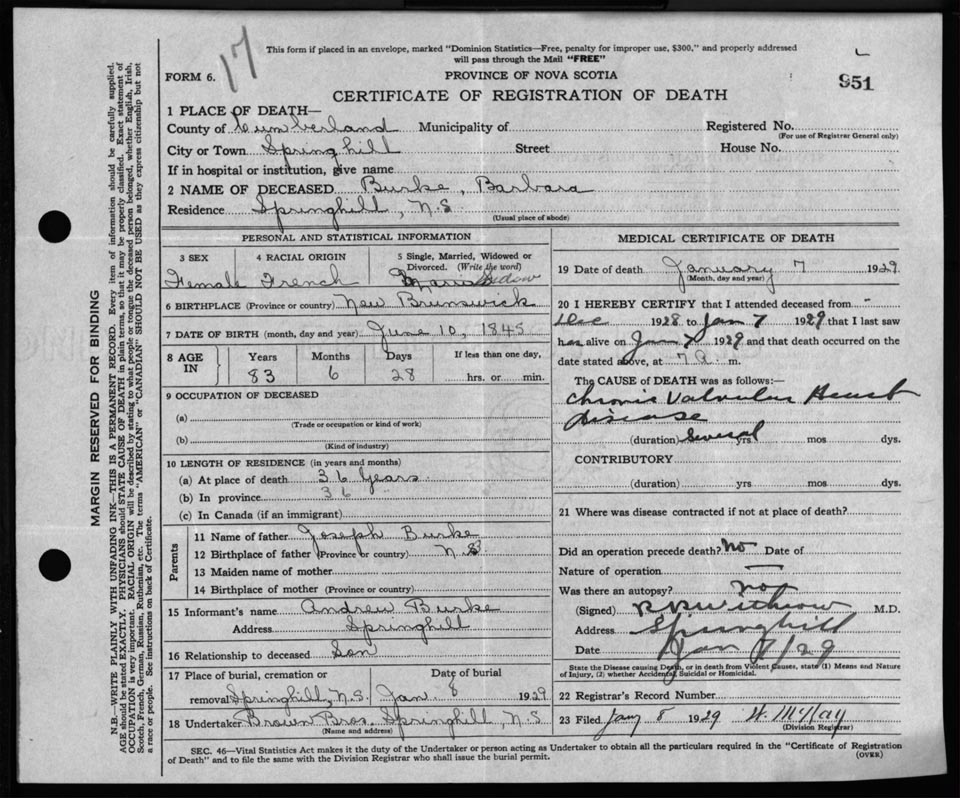 17
This form if placed in an envelope, marked "Dominion Statistics—Free, penalty for improper use, $300," and properly addressed
will pass through the Mail "FREE"
FORM 6.
PROVINCE OF NOVA SCOTIA
951
CERTIFICATE OF REGISTRATION OF DEATH
1 PLACE OF DEATH—
County of Cumberland Municipality of Registered No.
(For use of Registrar General only)
City or Town Springhill Street House No.
If in hospital or institution, give name
2 NAME OF DECEASED Burke, Barbara
Residence Springhill, N.S.
(Usual place of abode)
PERSONAL AND STATISTICAL INFORMATION
3 SEX 4 RACIAL ORIGIN 5 Single, Married, Widowed or
Divorced. (Write the word)
Female French Widow
6 BIRTHPLACE (Province or country) New Brunswick
7 DATE OF BIRTH (month, day and year) June 10, 1845
8 AGE IN Years Months Days If less than one day,
83 6 28 hrs. or min.
9 OCCUPATION OF DECEASED
(a)
(Trade or occupation or kind of work)
(b)
(Kind of industry)
10 LENGTH OF RESIDENCE (in years and months)
(a) At place of death 36 Years
(b) In province 36 "
(c) In Canada (if an immigrant)
Parents
11 Name of father Joseph Burke
12 Birthplace of father (Province or country) N.S
13 Maiden name of mother
14 Birthplace of mother (Province or country)
15 Informant's name Andrew Burke
Address Springhill
16 Relationship to deceased Son
17 Place of burial, cremation or Date of burial
removal Springhill, N.S. Jan 8 1929
18 Undertaker Brown Bros. Springhill, N.S
(Name and address)
MEDICAL CERTIFICATE OF DEATH
19 Date of death January 7 1929
(Month, day and year)
20 I HEREBY CERTIFY that I attended deceased from
Dec 1928 to Jan 7 1929 that I last saw
her alive on Jan 7 1929 and that death occurred on the
date stated above, at 7 a. m.
The CAUSE OF DEATH was as follows:—
Chronic Valvular Heart
disease
(duration) Several yrs mos dys.
CONTRIBUTORY
(duration) yrs mos dys.
21 Where was disease contracted if not at place of death?
Did an operation precede death? No Date of
Nature of operation
Was there an autopsy? no
(Signed) Withrow M.D.
Address Springhill
Date Jan 8/29
State the Disease causing Death, or in death from Violent Causes, state (1) Means and Nature
of Injury, (2) whether Accidental, Suicidal or Homicidal.
22 Registrar's Record Number
23 Filed Jany 8 1929
(Division Registrar)
SEC. 46—Vital Statistics Act makes it the duty of the Undertaker or person acting as Undertaker to obtain all the particulars required in the "Certificate of Registration
of Death" and to file the same with the Division Registrar who shall issue the burial permit.
(OVER)
MARGIN RESERVED FOR BINDING
N.B.—WRITE PLAINLY WITH UNFADING INK—THIS IS A PERMANENT RECORD. Every item of information should be carefully supplied.
AGE should be stated EXACTLY. PHYSICIANS should STATE CAUSE OF DEATH in plain terms, so that it may be properly classified. Exact statement of
OCCUPATION is very important. RACIAL ORIGIN will be described by stating to what people or tongue the deceased person belonged, whether English, Irish,
Scotch, French, German, Russian, Ruthenian, etc. The terms "AMERICAN" or "CANADIAN" SHOULD NOT BE USED as they express citizenship but not
a race or people. See instructions on back of Certificate.